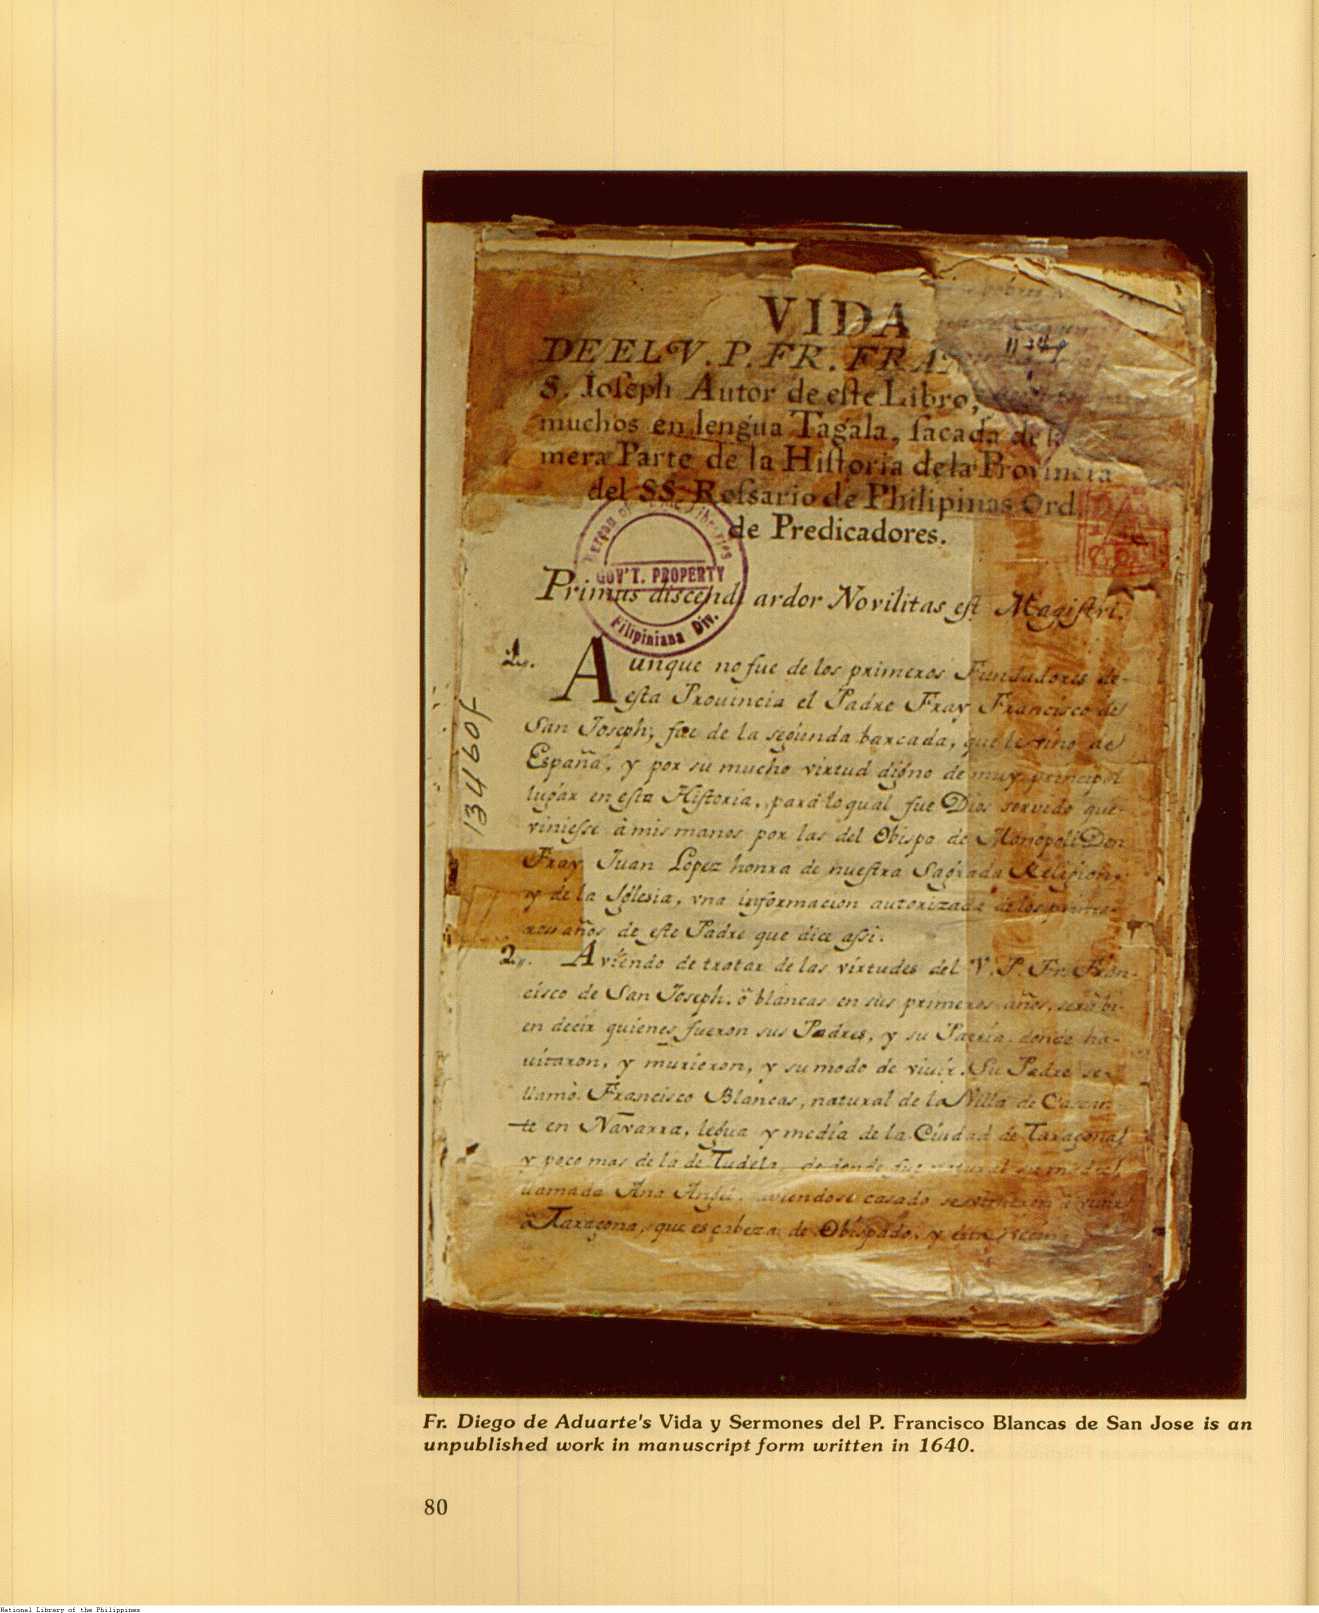 VIDA
DE EL V. P. FR. FRAN
S. Joseph Autor de este Libro,
muchos en lengua Tagala, sacada de la
mera Parte de la Historia de la Provincia
del SS. Rossario de Philipinas Ord
de Predicadores.
Bureau of Public Libraries
GOV'T. PROPERTY
Filipiniana Div.
Primus discendi ardor Novilitas est Magistri.
1. Aunque no fue de los primeros Fundadores de
esta Prouincia el Padre Fray Francisco de
San Joseph, fue de la segunda barcada, que le vino de
España, y por su mucho virtud digno de muy principal
lugar en esta Historia, para lo qual fue Dios servido que
viniesse à mis manos por las del Obispo de Monopoli Don
Fray Juan Lopez honra de nuestra Sagrada Religion
y de la Iglesia, vna informacion autorizada de los prime-
ros años de este Padre que dice assi.
2. Aviendo de tratar de las virtudes del V. P. Fr. Fran-
cisco de San Joseph. ò blancas en sus primeros años, serà bi-
en decir quienes fueron sus Padres, y su Patria donde ha-
uitaron, y murieron, y su modo de viuir. Su Padre se
llamò Francisco Blancas, natural de la Villa de Cascan-
te en Navarra, legua y media de la Ciudad de Taraçona
y poco mas de la de Tudela, de donde fue natural su madre
llamada Ana aviendose casado se vinieron à viuir
à Taraçona, que es cabeza de Obispado, y
13460f
Fr. Diego de Aduarte's Vida y Sermones del P. Francisco Blancas de San Jose is an
unpublished work in manuscript form written in 1640.
80
National Library of the Philippines